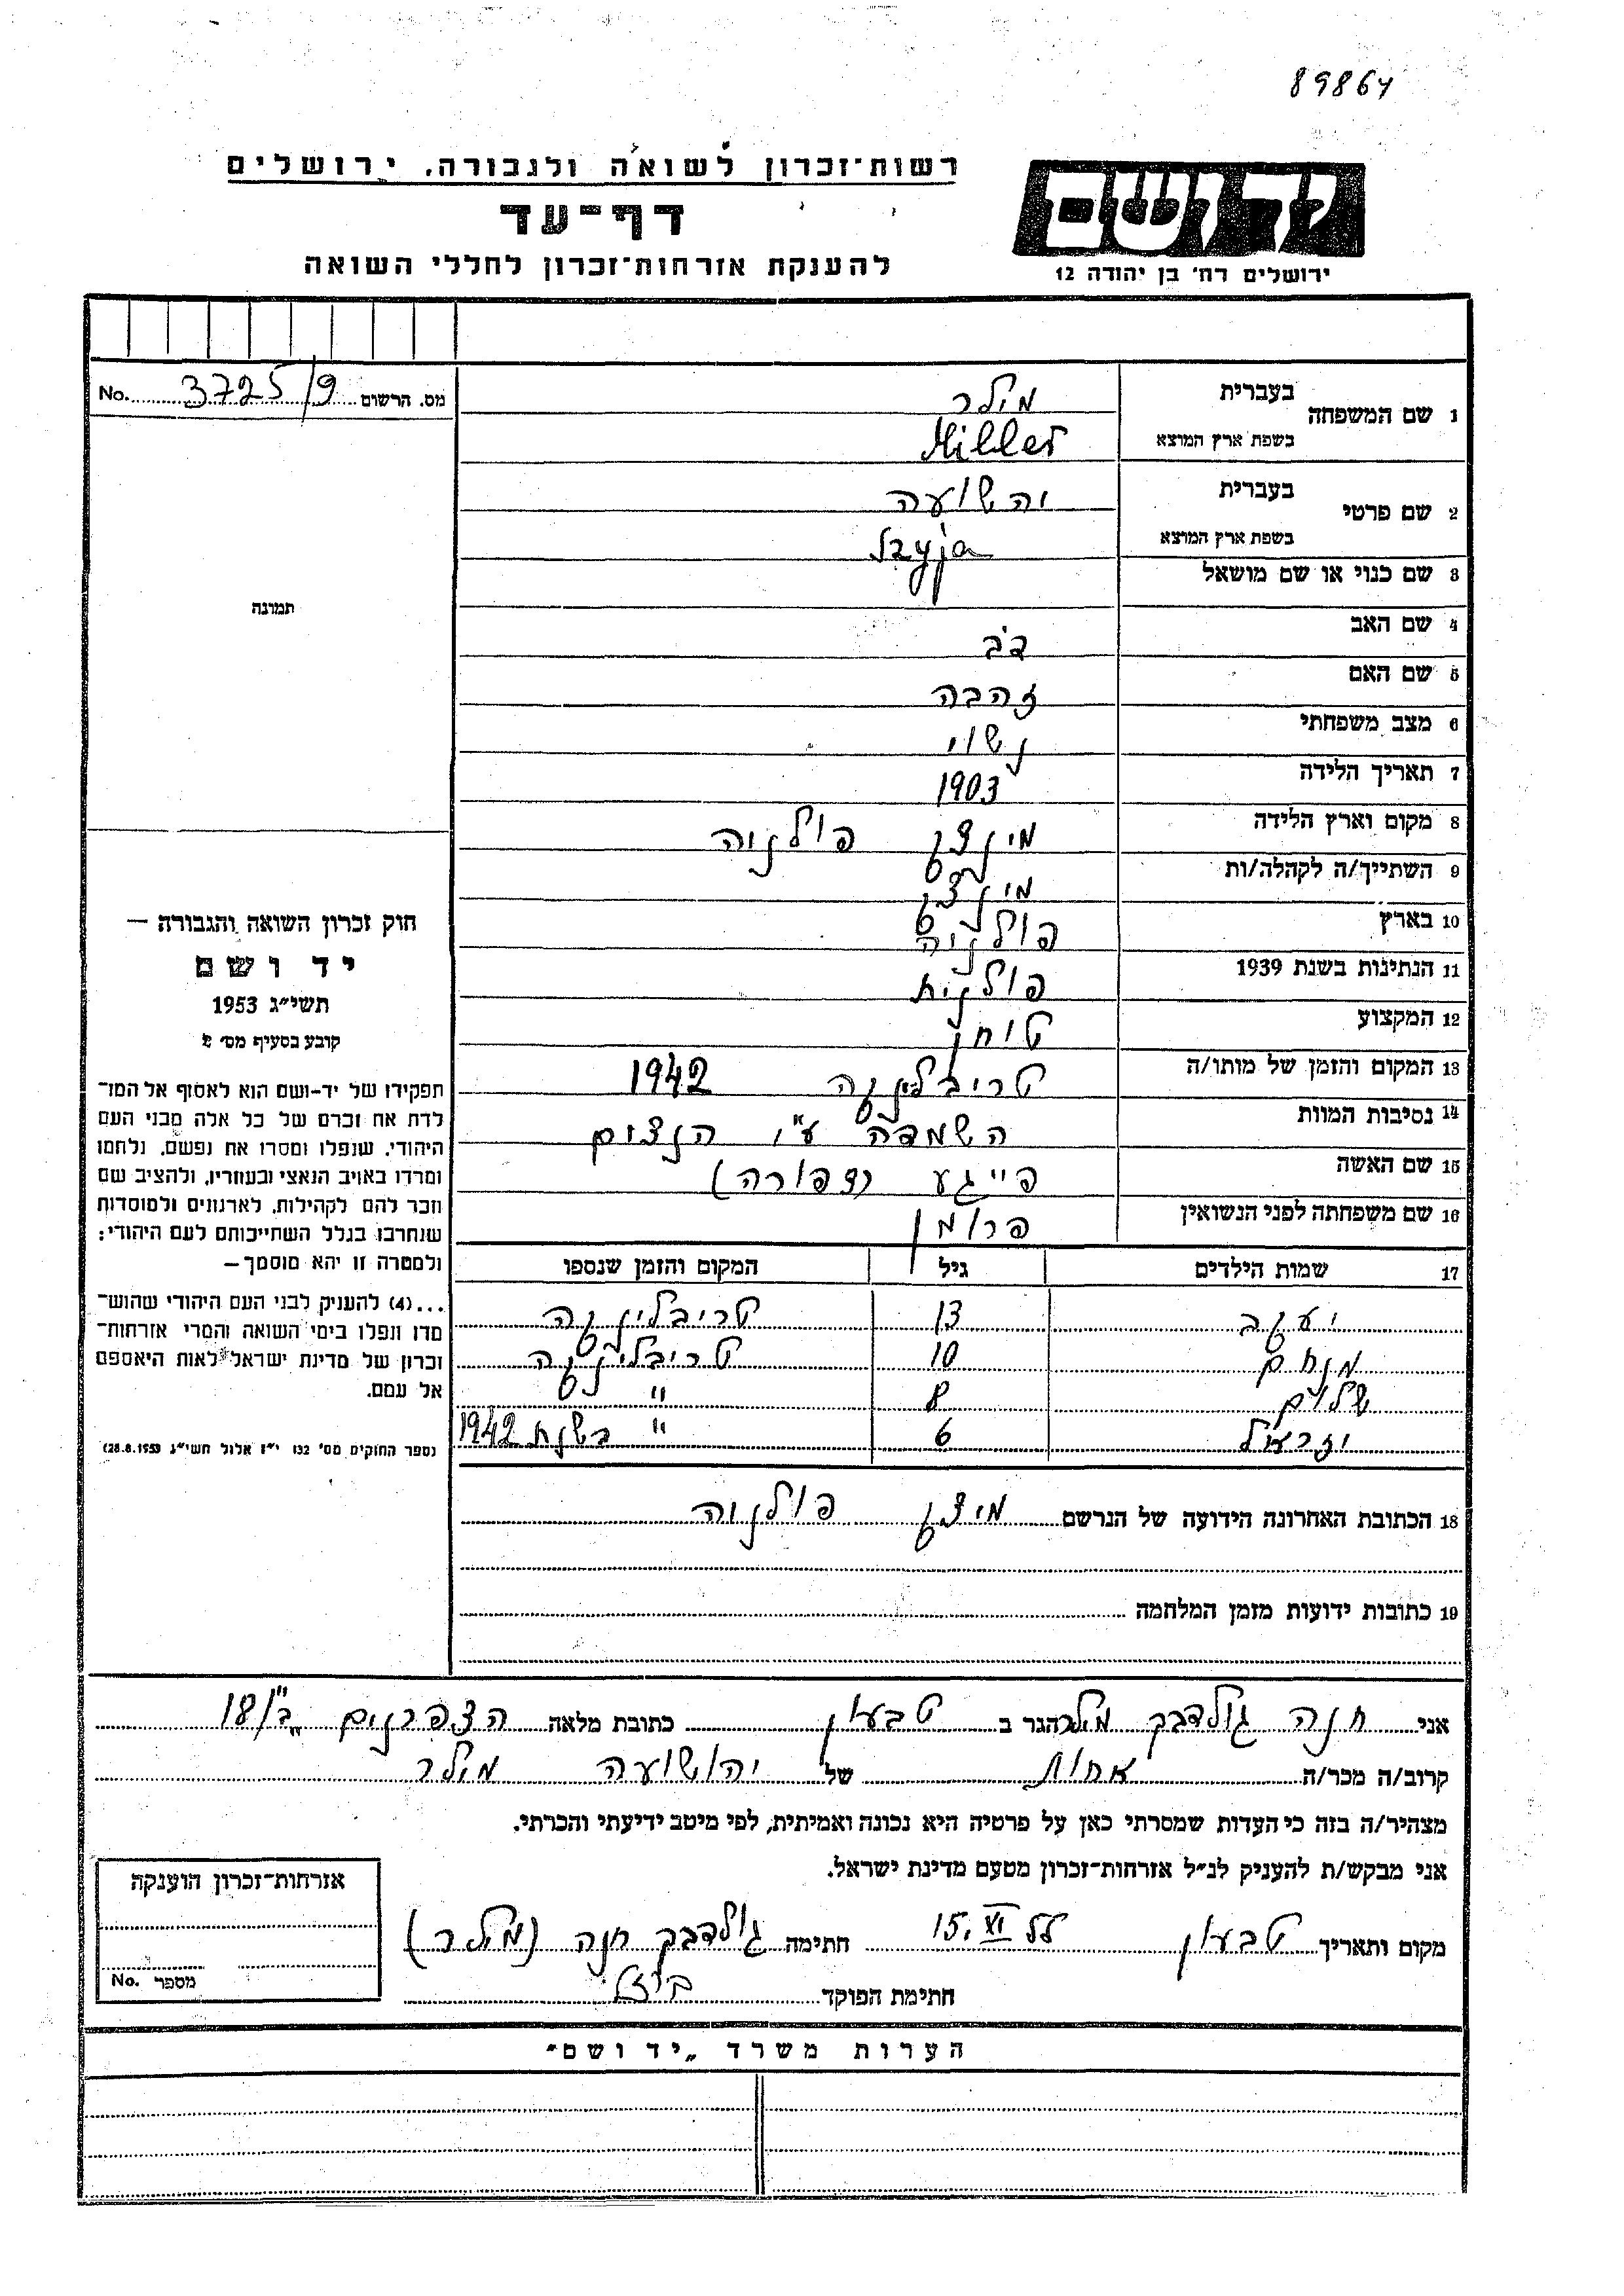 89864
רשות־זכרון לשואה ולגבורה, ירושלים
דף־עד
להענקת אזרחות־זכרון לחללי השואה
ידושם
ירושלים רח' בן יהודה 12
מס. הרשום 3725/9 No.
1 שם המשפחה בעברית מילר
בשפת ארץ המוצא Miller
2 שם פרטי בעברית יהשועה
בשפת ארץ המוצא Szyja
3 שם כנוי או שם מושאל
4 שם האב דב
5 שם האם זהבה
6 מצב משפחתי נשוי
7 תאריך הלידה 1903
8 מקום וארץ הלידה פולניה
9 השתייך/ה לקהלה/ות
10 בארץ פולניה
11 הנתינות בשנת 1939 פולנית
12 המקצוע טוחן
13 המקום והזמן של מותו/ה טריבלינקה 1942
14 נסיבות המוות השמדה ע"י הנצים
15 שם האשה פייגע (צפורה)
16 שם משפחתה לפני הנשואין פרומן
17 שמות הילדים גיל המקום והזמן שנספו
יעקב 13 טריבלינקה
מנחם 10 טריבלינקה
שלום 8 "
יזרעיל 6 " בשנת 1942
18 הכתובת האחרונה הידועה של הנרשם פולניה
19 כתובות ידועות מזמן המלחמה
תמונה
חוק זכרון השואה והגבורה —
יד ושם
תשי"ג 1953
קובע בסעיף מס' 2
תפקידו של יד-ושם הוא לאסוף אל המו־
לדת את זכרם של כל אלה מבני העם
היהודי, שנפלו ומסרו את נפשם, נלחמו
ומרדו באויב הנאצי ובעוזריו, ולהציב שם
וזכר להם לקהילות, לארגונים ולמוסדות
שנחרבו בגלל השתייכותם לעם היהודי;
ולמטרה זו יהא מוסמך —
...(4) להעניק לבני העם היהודי שהוש־
מדו ונפלו בימי השואה והמרי אזרחות־
זכרון של מדינת ישראל לאות היאספם
אל עמם.
(ספר החוקים מס' 132 י"ז אלול תשי"ג 28.8.1953)
אני חנה גולדברג מילר הגר ב טבעון כתובת מלאה הצפרנים ב"/18
קרוב/ה מכר/ה אחות של יהושועה מילר
מצהיר/ה בזה כי העדות שמסרתי כאן על פרטיה היא נכונה ואמיתית, לפי מיטב ידיעתי והכרתי.
אני מבקש/ת להעניק לנ"ל אזרחות־זכרון מטעם מדינת ישראל.
מקום ותאריך טבעון 15.VI חתימה גולדברג חנה (מילר)
חתימת הפוקד
אזרחות־זכרון הוענקה
מספר No.
הערות משרד „יד ושם"